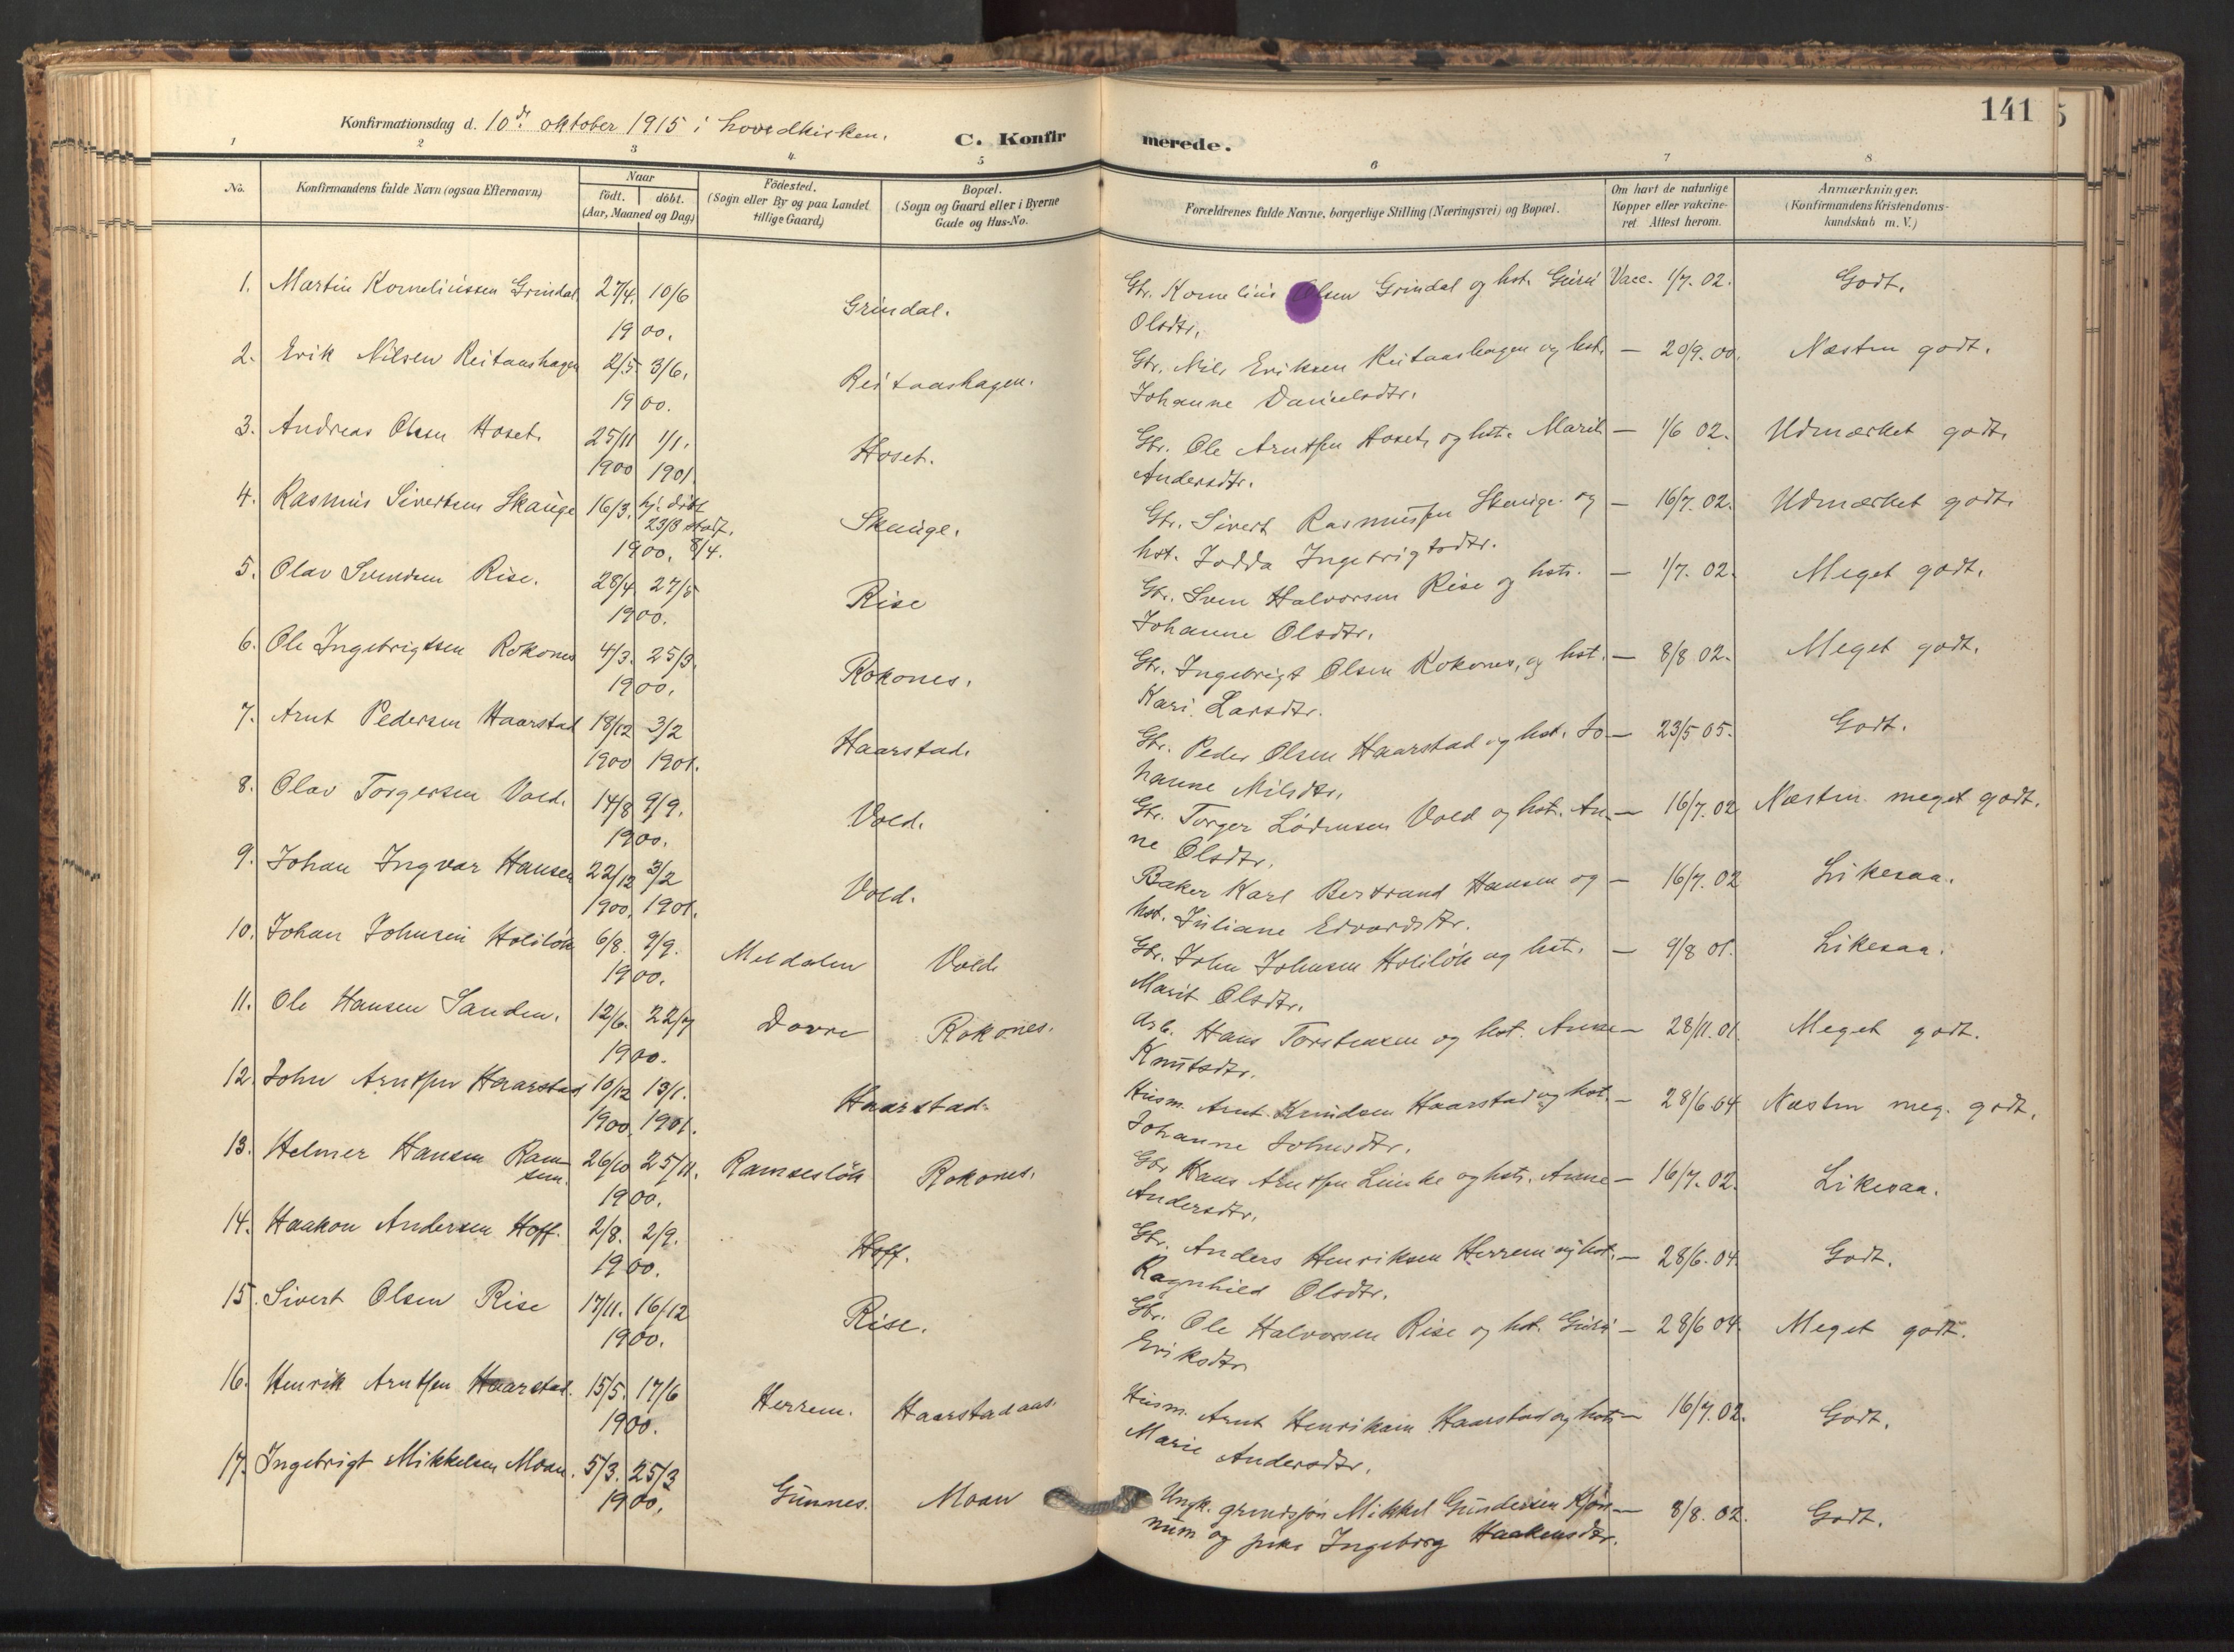 141
Konfirmationsdag d. 10de oktober 1915 i hovedkirken.
C. Konfirmerede.
1 2 3 4 5 6 7 8
No. Konfirmandens fulde Navn (ogsaa Efternavn) Naar født. døbt. (Aar, Maaned og Dag) Fødested. (Sogn eller By og paa Landet tillige Gaard) Bopæl. (Sogn og Gaard eller i Byerne Gade og Hus-No. Forældrenes fulde Navne, borgerlige Stilling (Næringsvei) og Bopæl. Om havt de naturlige Kopper eller vakcineret. Attest herom. Anmærkninger. (Konfirmandens Kristendomskundskab m. V.)
1. Martin Korneliussen Grindal 27/4. 10/6 Grindal. Gbr. Kornelius Olsen Grindal og hst. Guru Vacc. 1/7. 02. Godt.
1900. Olsdtr.
2. Erik Nilsen Reitaashagen 2/5 3/6. Reitaashagen. Gbr. Nils Eriksen Reitaashagen og hst. — 20/9. 00. Næsten godt.
1900. Johanne Danielsdtr.
3. Andreas Olsen Hoset. 25/11 1/1. Hoset. Gbr. Ole Arntsen Hoset, og hst. Marit — 1/6 02. Udmærket godt.
1900 1901. Andersdtr.
4. Rasmus Sivertsen Skauge 16/3. hj. døbt 23/3 stadf. Skauge. Gbr. Sivert Rasmussen Skauge og — 16/7. 02. Udmærket godt.
1900. 8/4. hst. Jodda Ingebrigtsdtr.
5. Olav Svendsen Rise. 28/4 27/5 Rise Gbr. Sven Halvorsen Rise og hstr. — 1/7. 02. Meget godt.
1900. Johanne Olsdtr.
6. Ole Ingebrigtsen Rokones 4/3. 25/3. Rokones. Gbr. Ingebrigt Olsen Rokones, og hst. — 8/8 02. Meget godt.
1900. Kari Larsdtr.
7. Arnt Pedersen Haarstad 18/12 3/2 Haarstad. Gbr. Peder Olsen Haarstad og hst. Jo- — 23/5 05. Godt.
1900 1901. hanne Nilsdtr.
8. Olav Torgersen Vold. 14/8 9/9. Vold. Gbr. Torger Lødensen Vold og hst. An- — 16/7. 02 Næsten meget godt.
1900. ne Olsdtr.
9. Johan Ingvar Hansen 22/12 3/2 Vold. Baker Karl Bertrand Hansen og — 16/7. 02 Likesaa.
1900. 1901. hst. Juliane Edvardsdtr.
10. Johan Johnsen Holiløk 6/8. 9/9. Meldalen Vold Gbr. John Johnsen Holiløk og hst. — 9/8 01. Likesaa.
1900. Marit Olsdtr.
11. Ole Hansen Sanden. 12/6. 22/7 Dovre Rokones. Arb. Hans Torstensen og hst. Anne — 28/11. 01. Meget godt.
1900. Knutsdtr.
12. John Arntsen Haarstad 10/12 13/1. Haarstad. Husm. Arnt Knudsen Haarstad og hst. — 28/6. 04 Næsten meg. godt.
1900. 1901. Johanne Johnsdtr.
13. Helmer Hansen Ramsem. 26/10 25/11. Ramsesløk Rokones. Gbr Hans Arntsen og hstr. Anne — 16/7. 02. Likesaa.
1900. Andersdtr.
14. Haakon Andersen Hoff. 2/8. 2/9. Hoff. Gbr. Anders Henriksen Herrem og hst. — 28/6. 04. Godt.
1900. Ragnhild Olsdtr.
15. Sivert Olsen Rise 17/11. 16/12 Rise. Gbr. Ole Halvorsen Rise og hst. Guru — 28/6 04. Meget godt.
1900. Eriksdtr
16. Henrik Arntsen Haarstad. 15/5. 17/6 Herrem. Haarstadaas. Husm. Arnt Henriksen Haarstad og hst. — 16/7. 02. Godt.
1900. Marie Andersdtr.
17. Ingebrigt Mikkelsen Moan. 5/3. 25/3 Gunnes. Moan Ungk. Mikkel Gundersen — 8/8. 02. Godt.
1900. og pike Ingeborg Haakensdtr.